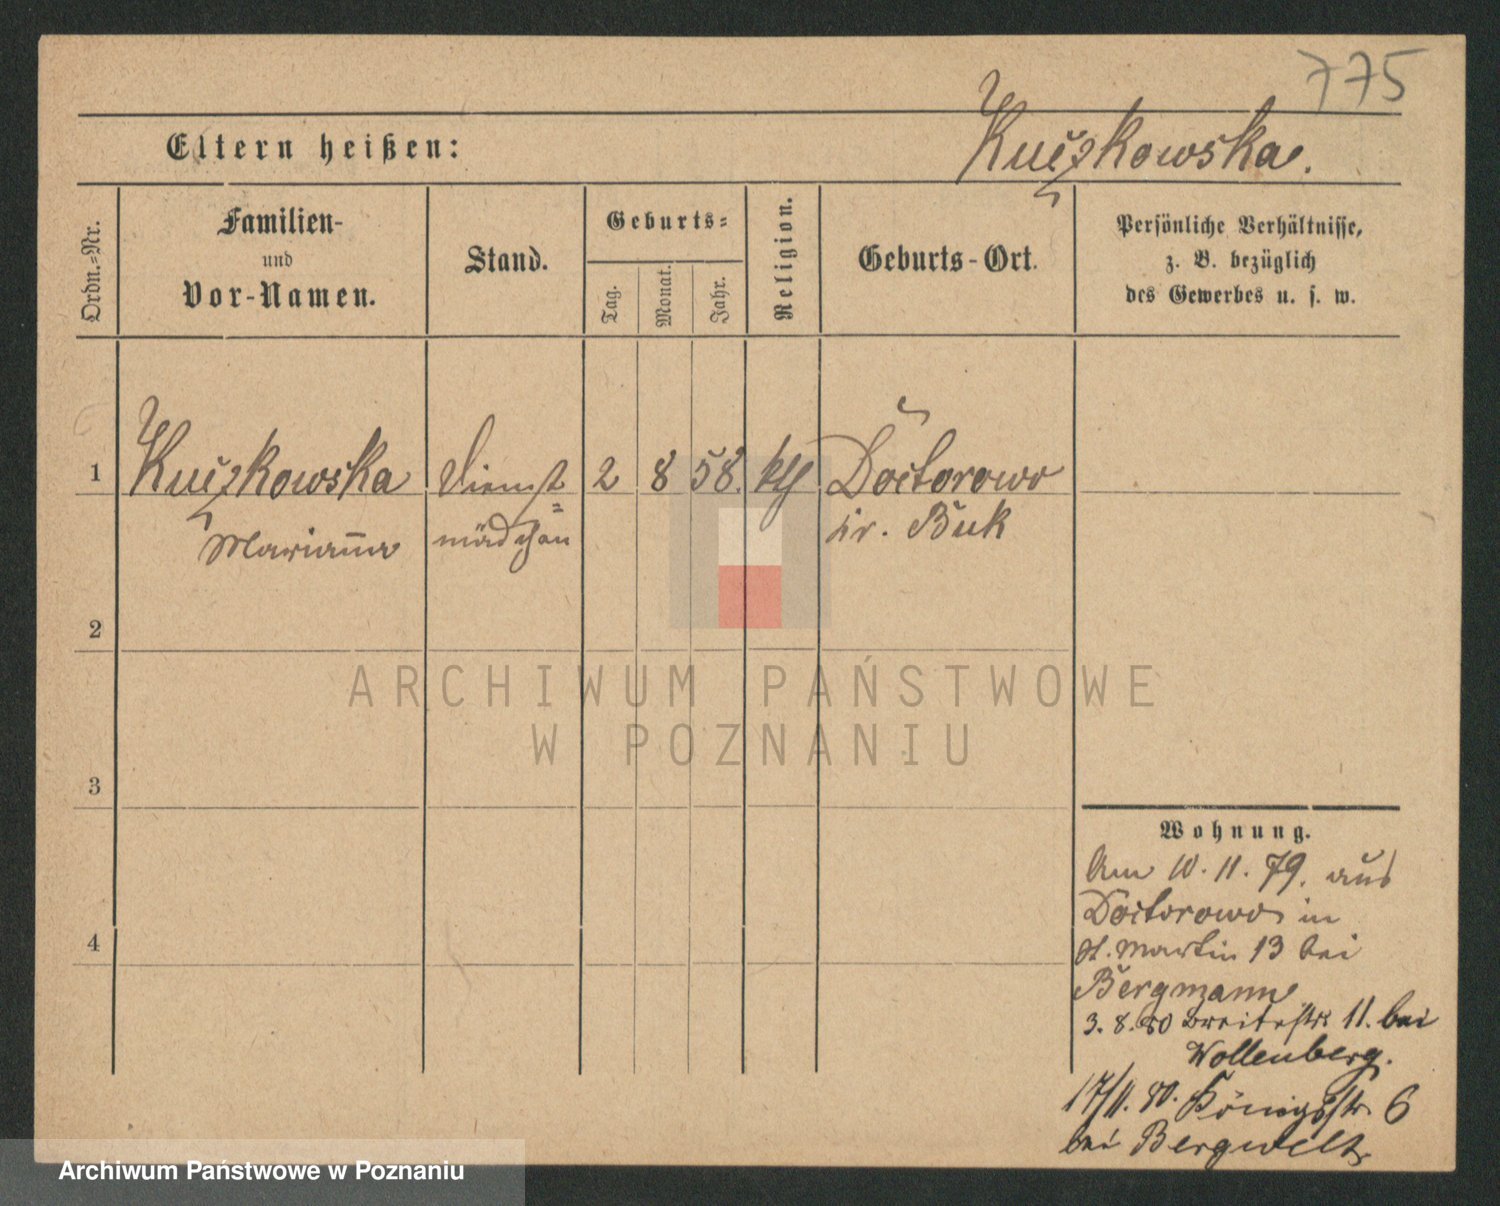 775
Eltern heißen:
Kuczkowska.
Ordn.-Nr.
Familien-
und
Vor-Namen.
Stand.
Geburts-
Tag.
Monat.
Jahr.
Religion.
Geburts-Ort.
Persönliche Verhältnisse,
z. B. bezüglich
des Gewerbes u. s. w.
1 Kuczkowska Dienst= 2 8 58. kth Doctorowo
Marianna mädchen Kr. Buk
2
3
4
Wohnung.
Am 10. 11. 79. aus
Doctorowo in
St. Martin 13 bei
Bergmann
3. 8. 80 Breitestr. 11. bei
Wollenberg.
17/11. 80. Königsstr. 6
bei Bergwelt
ARCHIWUM PAŃSTWOWE
W POZNANIU
Archiwum Państwowe w Poznaniu